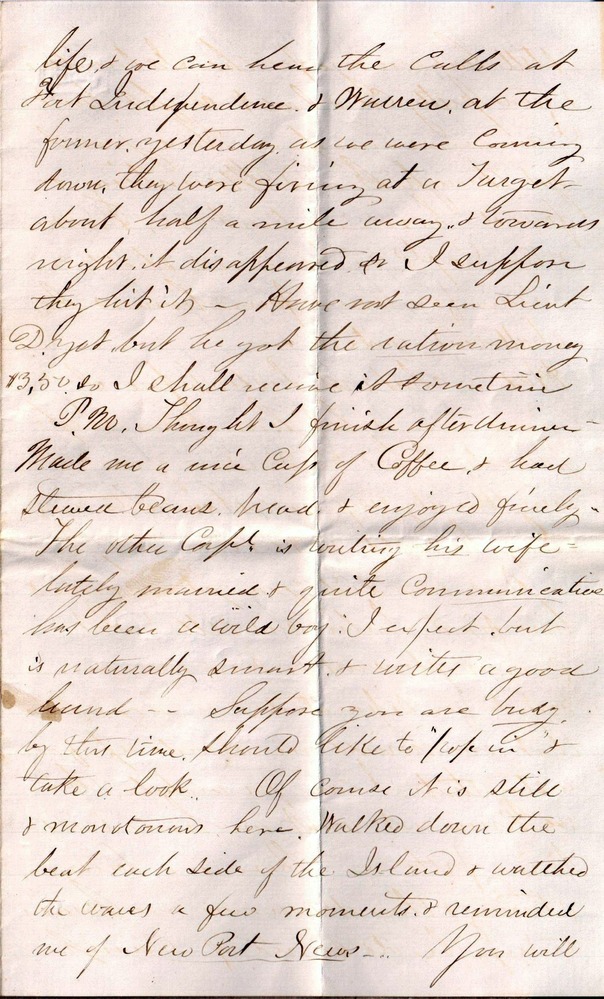 life, & we can hear the calls at
Fort Independence. & Warren. at the
former, yesterday, as we were coming
down, they were firing at a Target
about half a mile away, & towards
night, it disappeared so I suppose
they hit it – Have not seen Lieut
D. yet, but he got the ration money
13,50. so I shall receive it sometime
P.M. Thought I finish after dinner –
Made me a nice Cup of Coffee, & had
stewed beans. bread. & enjoyed finely –
The other Corpl. is writing his wife =
lately married & quite communicative
has been a wild boy. I expect. but
is naturally smart. & writes a good
hand -- Suppose you are busy.
by this time. should like to "pop in" &
take a look. Of course it is still
& monotonous here. Walked down the
beat each side of the Island & watched
the waves a few moments. & reminded
me of New Port News -. You will